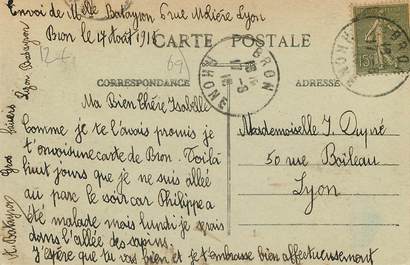 Envoi de Melle Batayron 6 rue Molière Lyon
Bron le 17 Août 1918
CARTE POSTALE
CORRESPONDANCE
ADRESSE
69
BRON
RHONE
15
Ma Bien Chère Isabelle
Comme je te l'avais promis je
t'envoie une carte de Bron. Voilà
huit jours que je ne suis allée
au parc le soir car Philippe a
été malade mais lundi je vais
dans l'allée des sapins.
J'espère que tu vas bien et je t'embrasse bien affectueusement
Mademoiselle I. Dupré
50 rue Boileau
Lyon
Gros baisers
Batayron